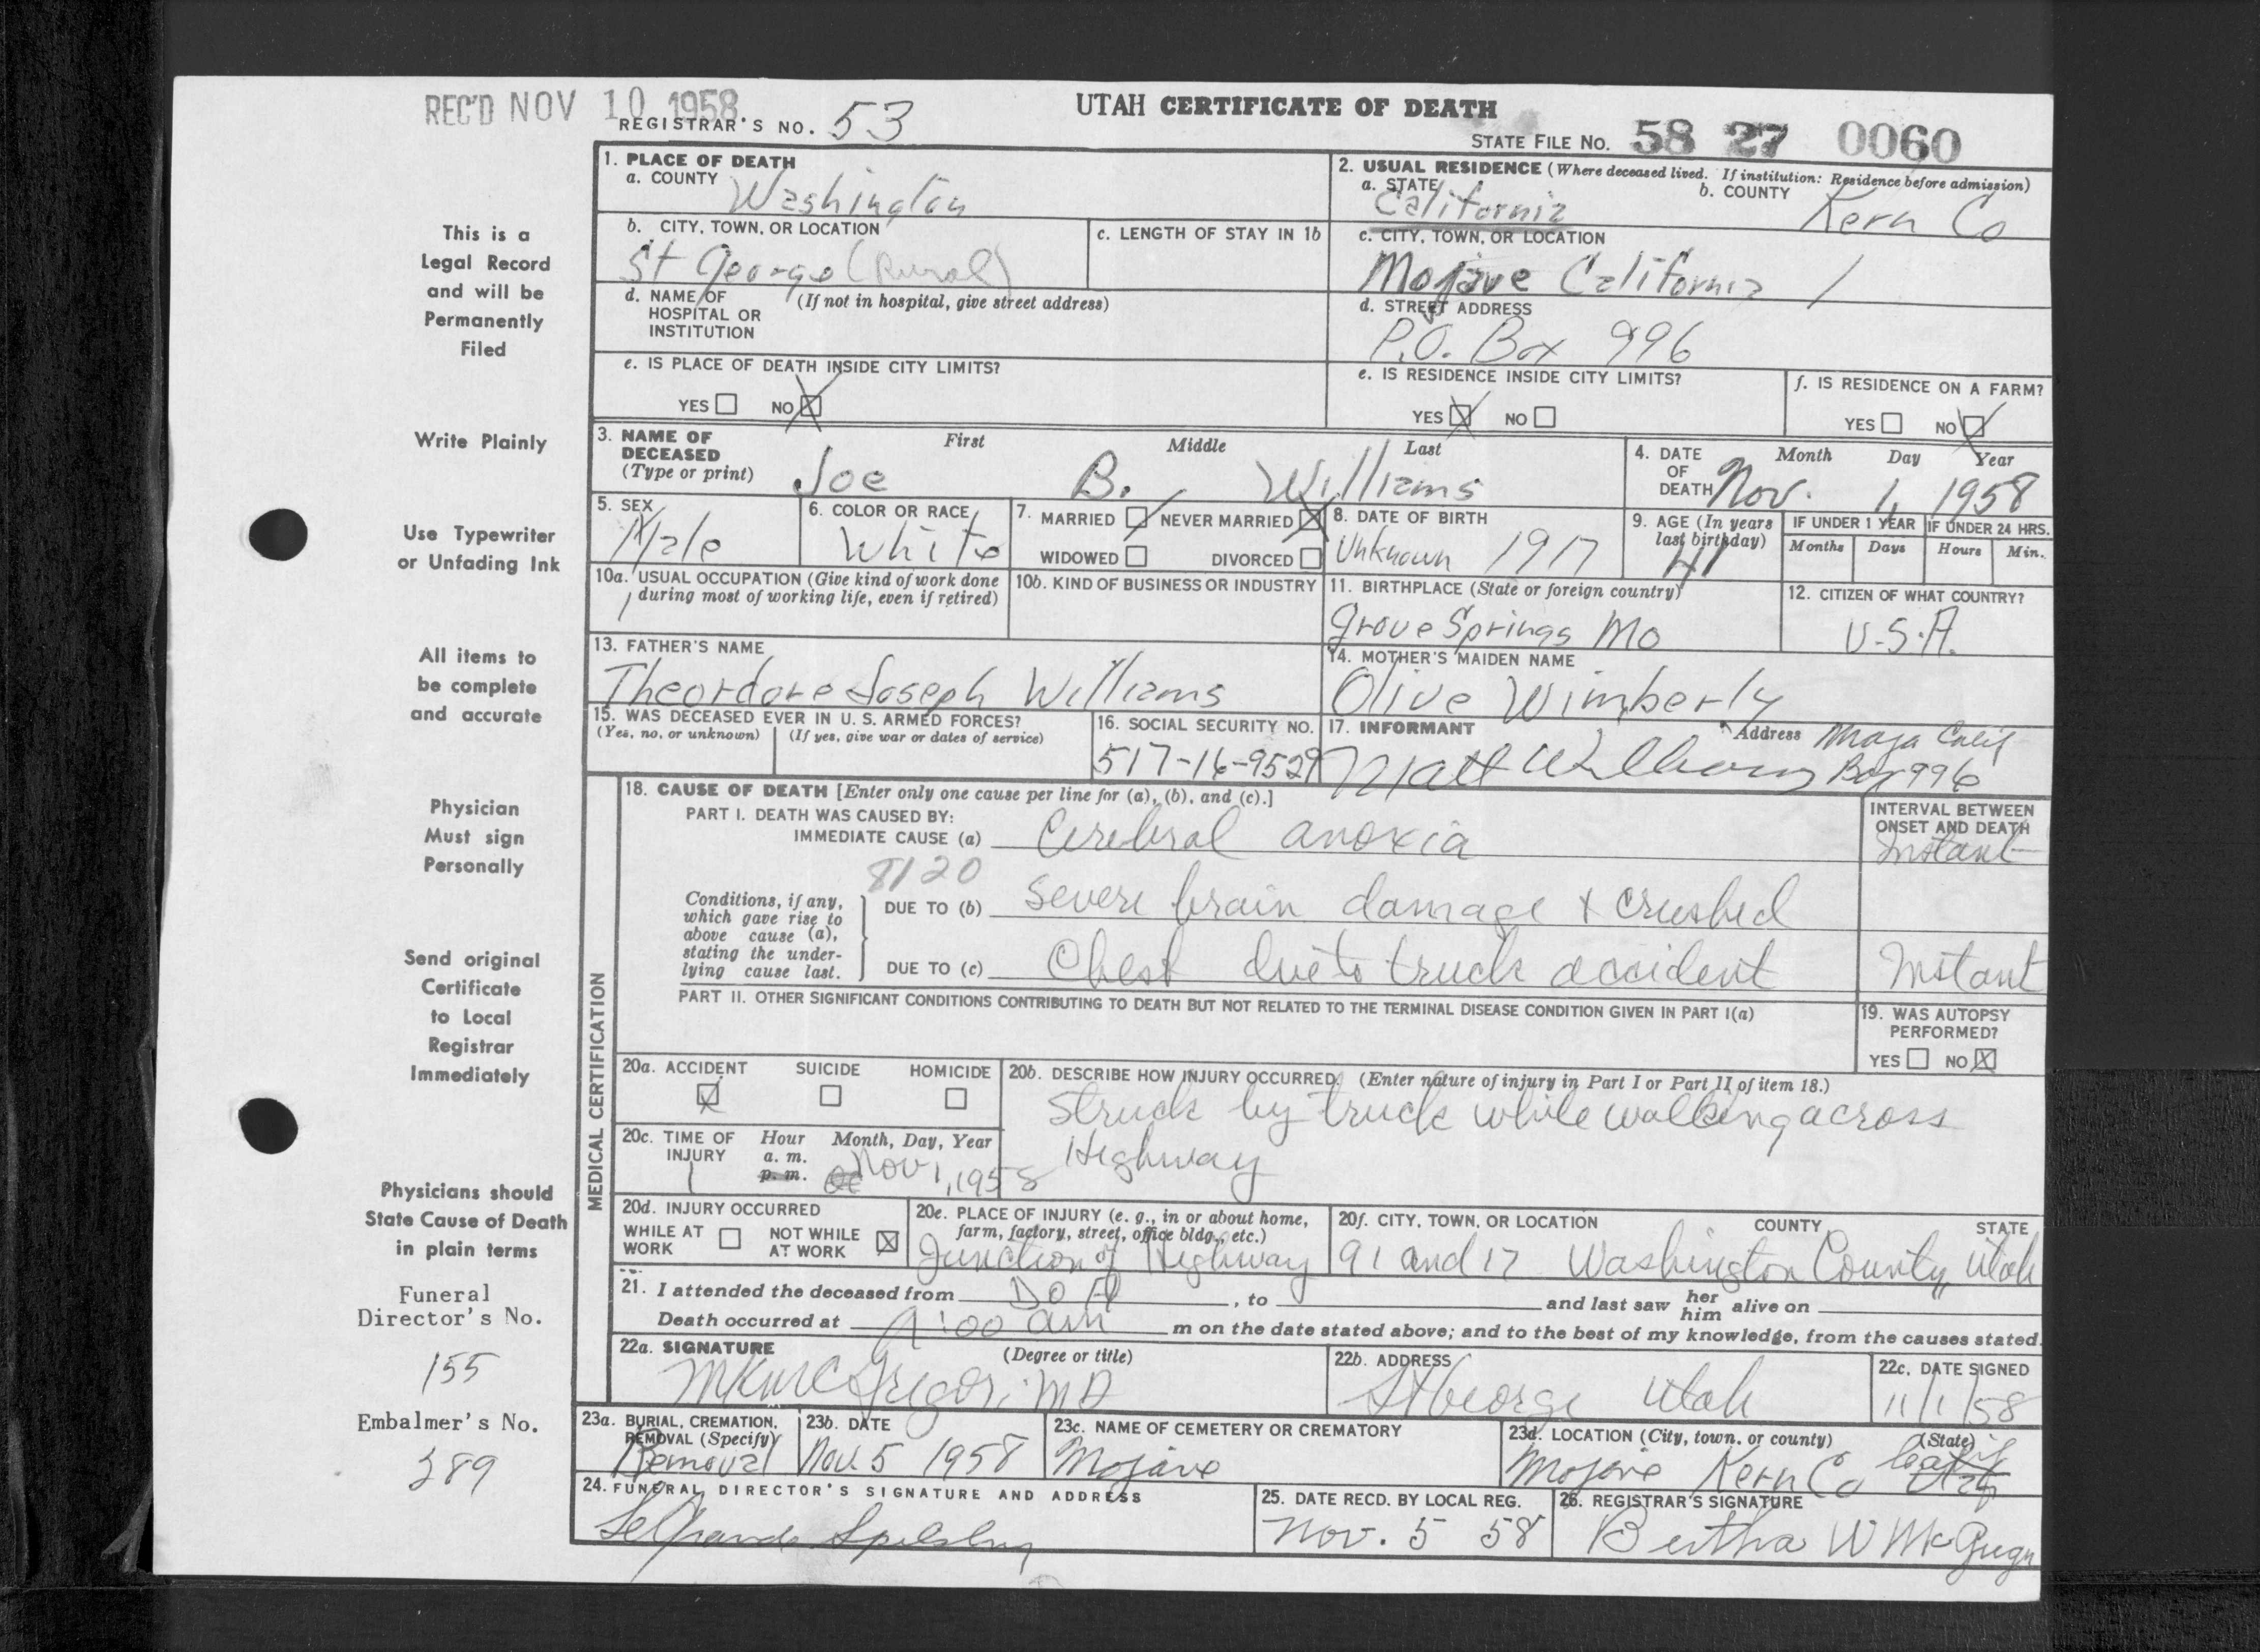 REC'D NOV 10 1958
REGISTRAR'S NO. 53
UTAH CERTIFICATE OF DEATH
STATE FILE NO. 58 27 0060
This is a
Legal Record
and will be
Permanently
Filed
Write Plainly
Use Typewriter
or Unfading Ink
All items to
be complete
and accurate
Physician
Must sign
Personally
Send original
Certificate
to Local
Registrar
Immediately
Physicians should
State Cause of Death
in plain terms
Funeral
Director's No.
155
Embalmer's No.
389
1. PLACE OF DEATH
a. COUNTY Washington
b. CITY, TOWN, OR LOCATION
St George (Rural)
c. LENGTH OF STAY IN 1b
d. NAME OF (If not in hospital, give street address)
HOSPITAL OR
INSTITUTION
e. IS PLACE OF DEATH INSIDE CITY LIMITS?
YES NO X
2. USUAL RESIDENCE (Where deceased lived. If institution: Residence before admission)
a. STATE California
b. COUNTY Kern Co
c. CITY, TOWN, OR LOCATION
Mojave California /
d. STREET ADDRESS
P.O. Box 996
e. IS RESIDENCE INSIDE CITY LIMITS?
YES X NO
f. IS RESIDENCE ON A FARM?
YES NO X
3. NAME OF DECEASED (Type or print)
First Middle Last
Joe B. Williams
4. DATE OF DEATH
Month Day Year
Nov. 1, 1958
5. SEX
Male
6. COLOR OR RACE
White
7. MARRIED NEVER MARRIED X
WIDOWED DIVORCED
8. DATE OF BIRTH
Unknown 1917
9. AGE (In years last birthday)
41
IF UNDER 1 YEAR
Months Days
IF UNDER 24 HRS.
Hours Min.
10a. USUAL OCCUPATION (Give kind of work done
during most of working life, even if retired)
10b. KIND OF BUSINESS OR INDUSTRY
11. BIRTHPLACE (State or foreign country)
Grove Springs Mo
12. CITIZEN OF WHAT COUNTRY?
U.S.A.
13. FATHER'S NAME
Theordore Joseph Williams
14. MOTHER'S MAIDEN NAME
Olive Wimberly
15. WAS DECEASED EVER IN U. S. ARMED FORCES?
(Yes, no, or unknown) (If yes, give war or dates of service)
16. SOCIAL SECURITY NO.
517-16-9529
17. INFORMANT Address
Matt Box 996
MEDICAL CERTIFICATION
18. CAUSE OF DEATH [Enter only one cause per line for (a), (b), and (c).]
PART I. DEATH WAS CAUSED BY:
IMMEDIATE CAUSE (a) Cerebral anoxia
8120
Conditions, if any,
which gave rise to
above cause (a),
stating the under-
lying cause last.
DUE TO (b) Severe brain damage + crushed
DUE TO (c) Chest due to truck accident
INTERVAL BETWEEN
ONSET AND DEATH
Instant
Instant
PART II. OTHER SIGNIFICANT CONDITIONS CONTRIBUTING TO DEATH BUT NOT RELATED TO THE TERMINAL DISEASE CONDITION GIVEN IN PART I(a)
19. WAS AUTOPSY
PERFORMED?
YES NO X
20a. ACCIDENT SUICIDE HOMICIDE
X
20b. DESCRIBE HOW INJURY OCCURRED. (Enter nature of injury in Part I or Part II of item 18.)
Struck by truck while walking across
Highway
20c. TIME OF INJURY
Hour Month, Day, Year
a. m.
p. m.
1 Nov 1, 1958
20d. INJURY OCCURRED
WHILE AT WORK NOT WHILE AT WORK X
20e. PLACE OF INJURY (e. g., in or about home,
farm, factory, street, office bldg., etc.)
Junction of Highway
20f. CITY, TOWN, OR LOCATION COUNTY STATE
91 and 17 Washington County, Utah
21. I attended the deceased from DOA, to and last saw her him alive on
Death occurred at 9:00 am m on the date stated above; and to the best of my knowledge, from the causes stated.
22a. SIGNATURE (Degree or title)
MK McGregor, MD
22b. ADDRESS
St George Utah
22c. DATE SIGNED
11/1/58
23a. BURIAL, CREMATION,
REMOVAL (Specify)
Removal
23b. DATE
Nov. 5 1958
23c. NAME OF CEMETERY OR CREMATORY
Mojave
23d. LOCATION (City, town, or county) (State)
Mojave Kern Co Calif
24. FUNERAL DIRECTOR'S SIGNATURE AND ADDRESS
25. DATE RECD. BY LOCAL REG.
Nov. 5 58
26. REGISTRAR'S SIGNATURE
Bertha W McGregor